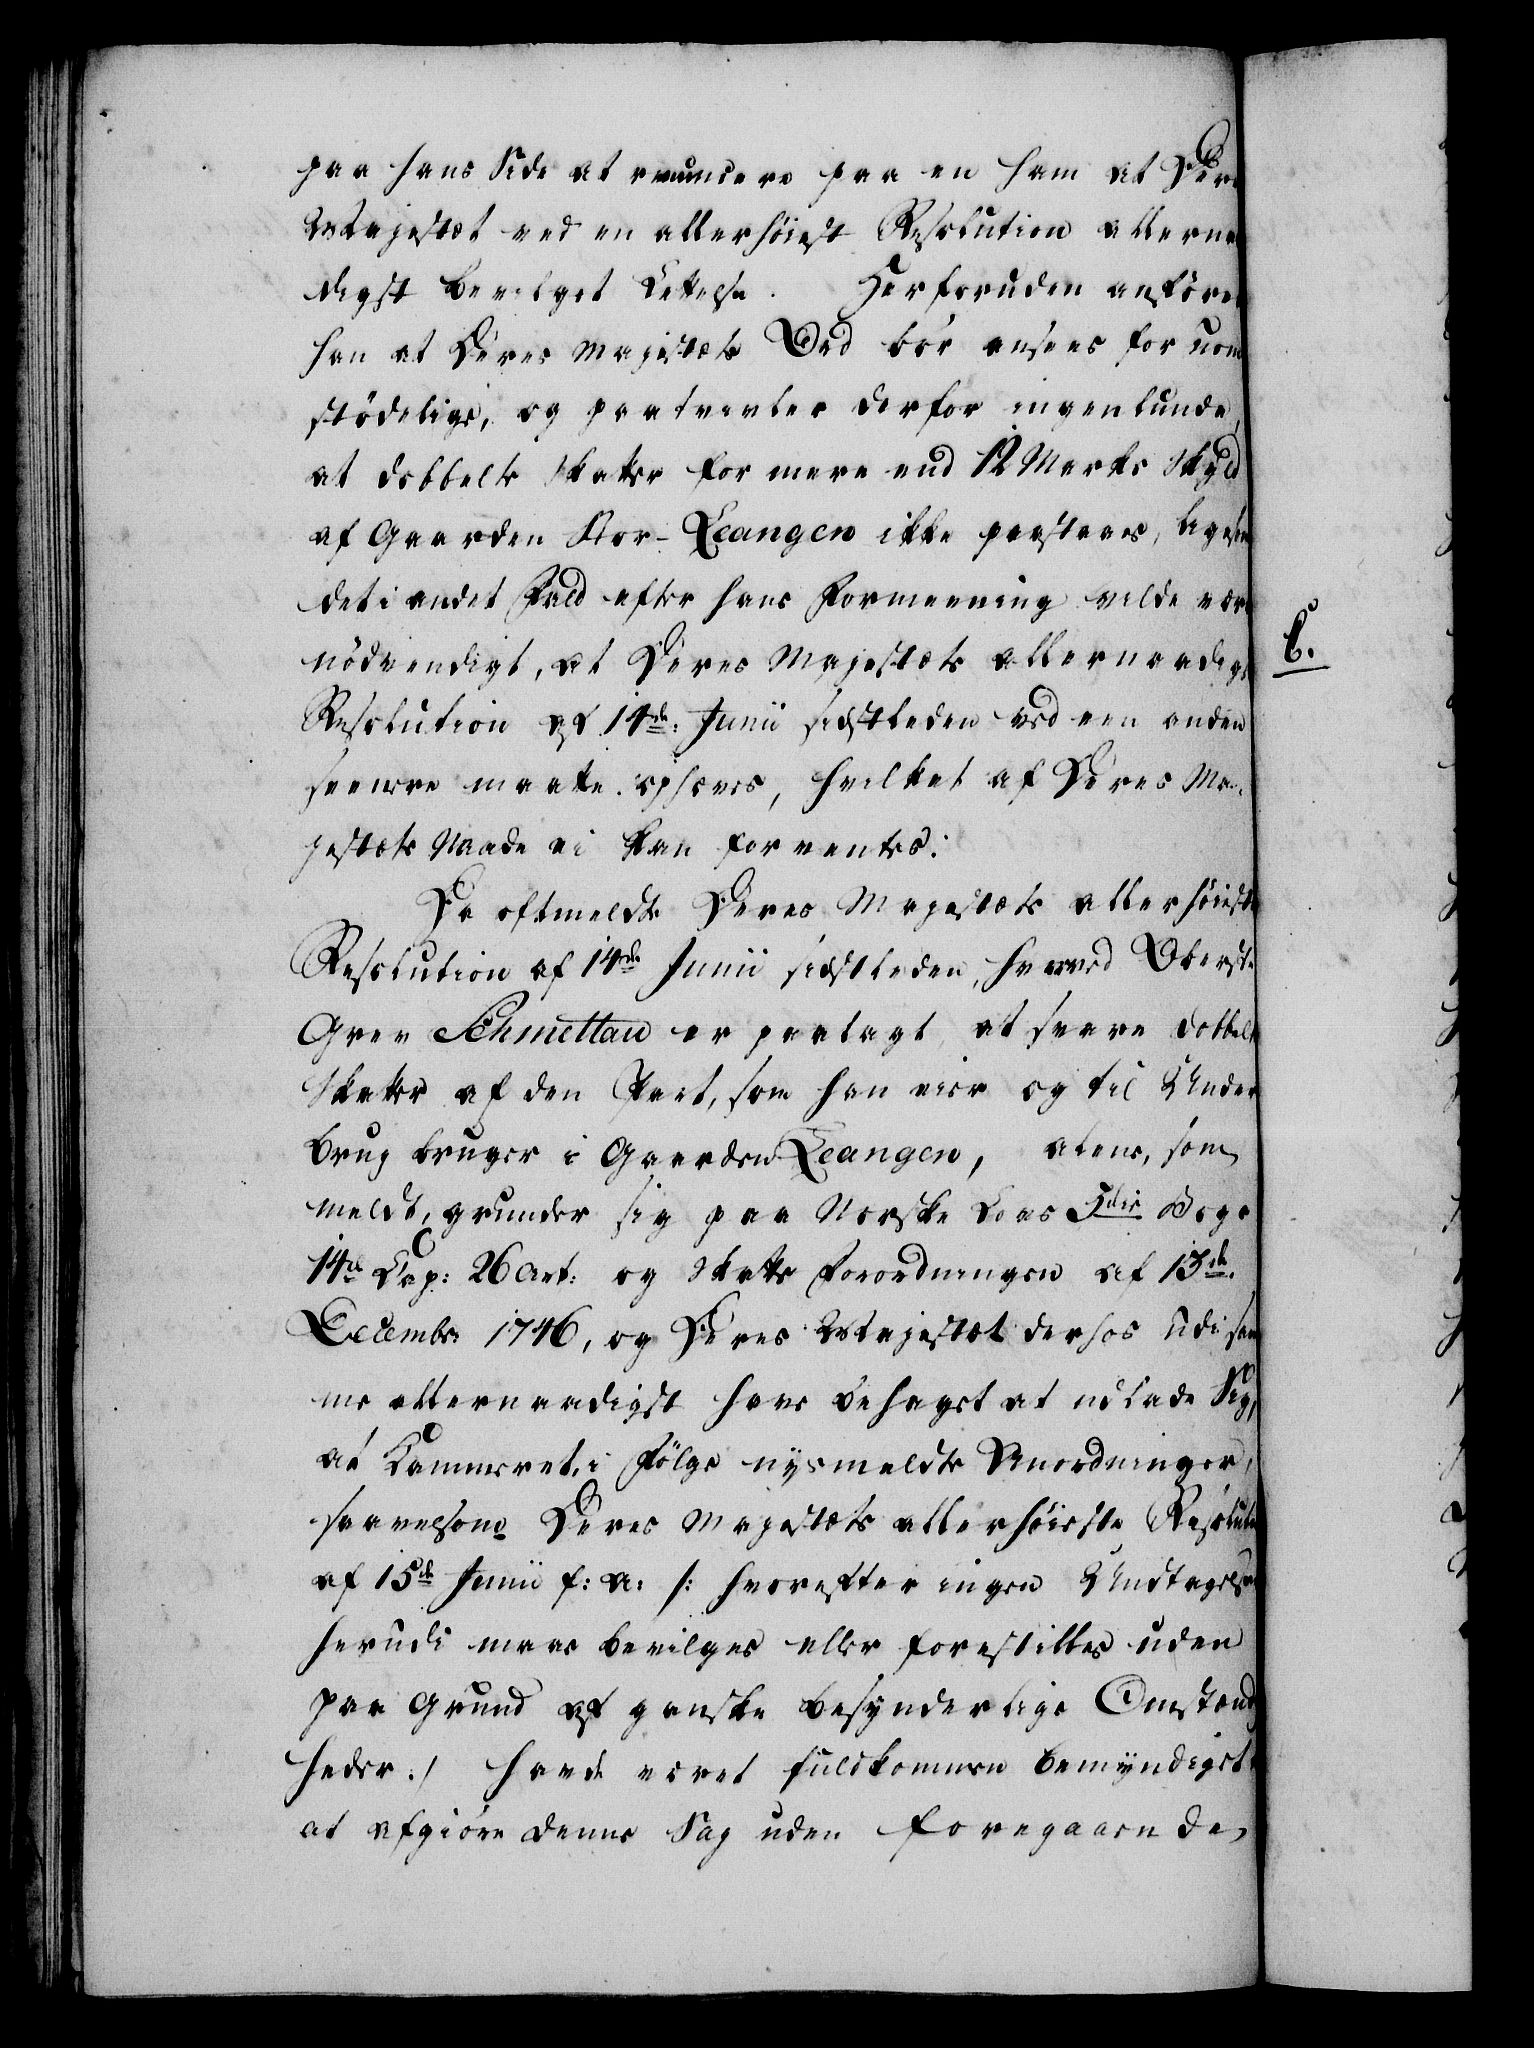 paa hans Side at renuncere paa en ham at Deres
Majestæt ved en allerhöiest Resolution allernaa
digst bevilget Lettelse. Herforuden anfører
han at Deres Majestæts Ord bör ansees for uom
stödelige, og paatvivler derfor ingenlunde,
at dobbelte Skatter for mere end 12 Marks Skyld
af Gaarden Stor-Leangen ikke paastaaes, ligesom
det i andet Fald efter hans Formeening vilde være
nödvendigt, at Deres Majestæts allernaadigste
Resolution af 14de Junii sidstleden ved een anden
seenere maatte ophæves, hvilket af Deres Ma-
jestæts Naade ei kan forventes.
Da oftmeldte Deres Majestæts allerhöieste
Resolution af 14de Junii sidstleden, hvorved Oberste
Grev Schmettau er paalagt, at svare dobbelt
Skatter af den Part, som han eier og til Under
brug bruger i Gaarden Leangen, alene, som
meldt, grunder sig paa Norske Lovs 3die Bogs
14de Cap: 26 Art: og Skatte Forordningen af 13de
Decembr: 1746, og Deres Majestæt derhos udi sam
me allernaadigst have behaget at udlade Sig,
at Kammeret, i Fölge nysmeldte Anordninger,
saavelsom Deres Majestæts allerhöieste Resolution
af 15de Junii f: A: /: hvorefter ingen Undtagelse
herudi maae bevilges eller forestilles uden
paa Grund af ganske besynderlige Omstænd
heder :/ havde været fuldkommen bemyndiget
at afgiöre denne Sag uden foregaaende
C.